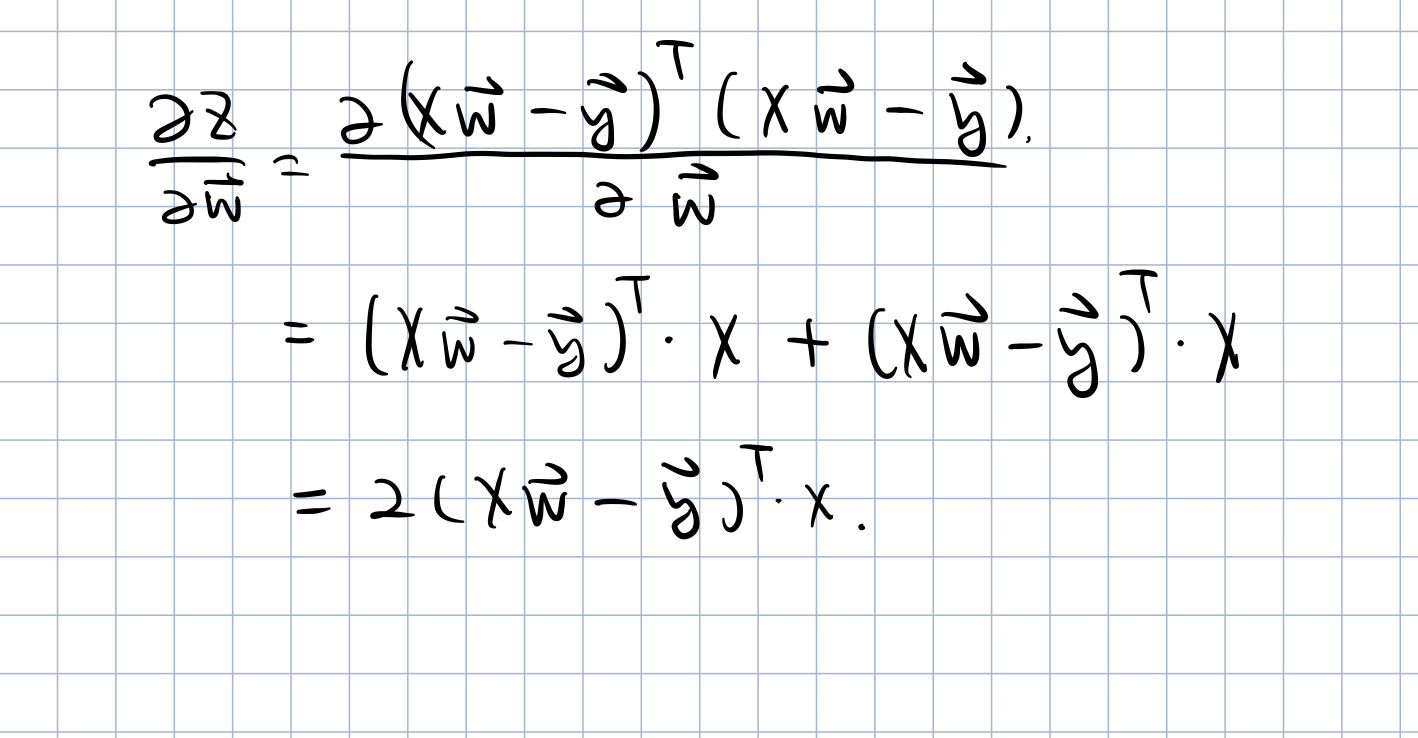 ∂z/∂w⃗ = ∂(Xw⃗ − y⃗)ᵀ(Xw⃗ − y⃗)/∂w⃗.
= (Xw⃗ − y⃗)ᵀ · X + (Xw⃗ − y⃗)ᵀ · X
= 2(Xw⃗ − y⃗)ᵀ · X.